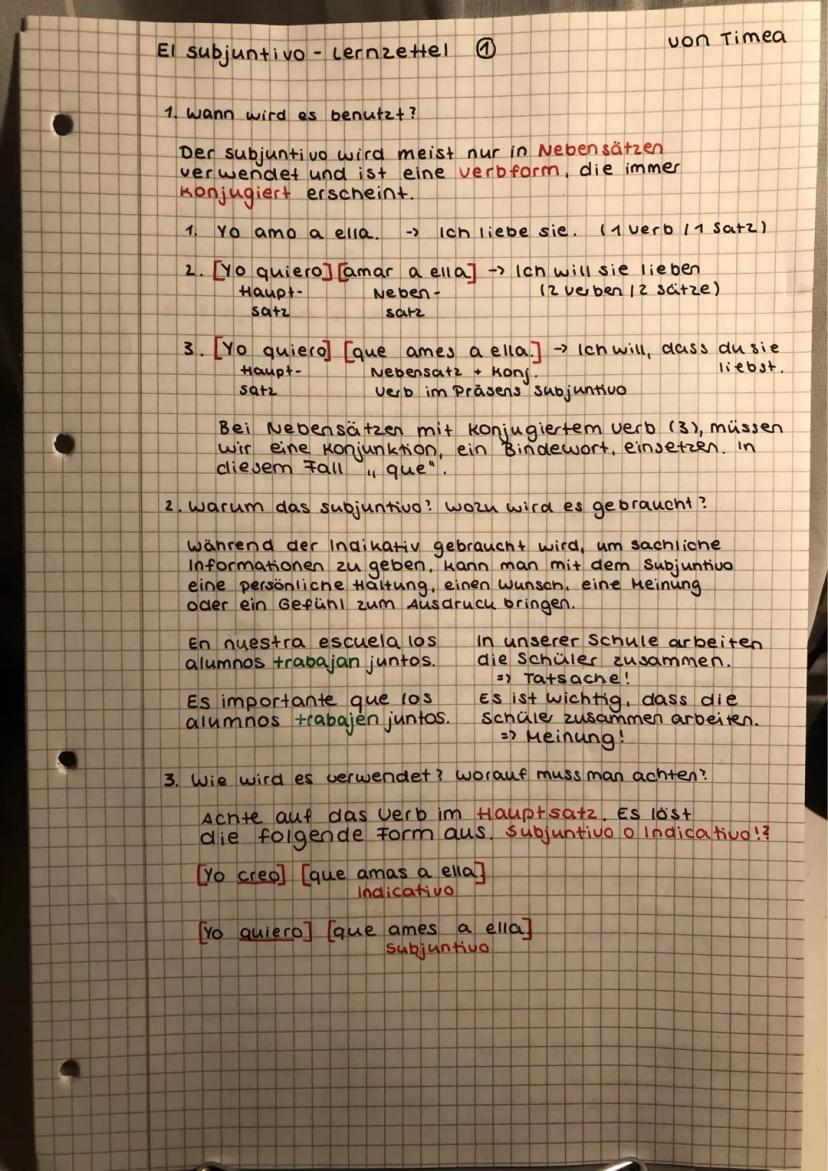 El subjuntivo - Lernzettel ①
von Timea
1. Wann wird es benutzt?
Der subjuntivo wird meist nur in Nebensätzen
verwendet und ist eine Verbform, die immer
konjugiert erscheint.
1. Yo amo a ella. -> Ich liebe sie. (1 Verb / 1 Satz)
2. [Yo quiero] [amar a ella] -> Ich will sie lieben
Haupt- Neben- (2 Verben / 2 Sätze)
satz satz
3. [Yo quiero] [que ames a ella.] -> Ich will, dass du sie
Haupt- Nebensatz + Konj. liebst.
satz Verb im Präsens subjuntivo
Bei Nebensätzen mit konjugiertem Verb (3), müssen
wir eine Konjunktion, ein Bindewort, einsetzen. In
diesem Fall „que".
2. Warum das subjuntivo? Wozu wird es gebraucht?
Während der Indikativ gebraucht wird, um sachliche
Informationen zu geben, kann man mit dem Subjuntivo
eine persönliche Haltung, einen Wunsch, eine Meinung
oder ein Gefühl zum Ausdruck bringen.
En nuestra escuela los In unserer Schule arbeiten
alumnos trabajan juntos. die Schüler zusammen.
=> Tatsache!
Es importante que los Es ist wichtig, dass die
alumnos trabajen juntos. Schüler zusammen arbeiten.
=> Meinung!
3. Wie wird es verwendet? Worauf muss man achten?
Achte auf das Verb im Hauptsatz. Es löst
die folgende Form aus. Subjuntivo o Indicativo!?
[Yo creo] [que amas a ella]
Indicativo
[Yo quiero] [que ames a ella]
Subjuntivo